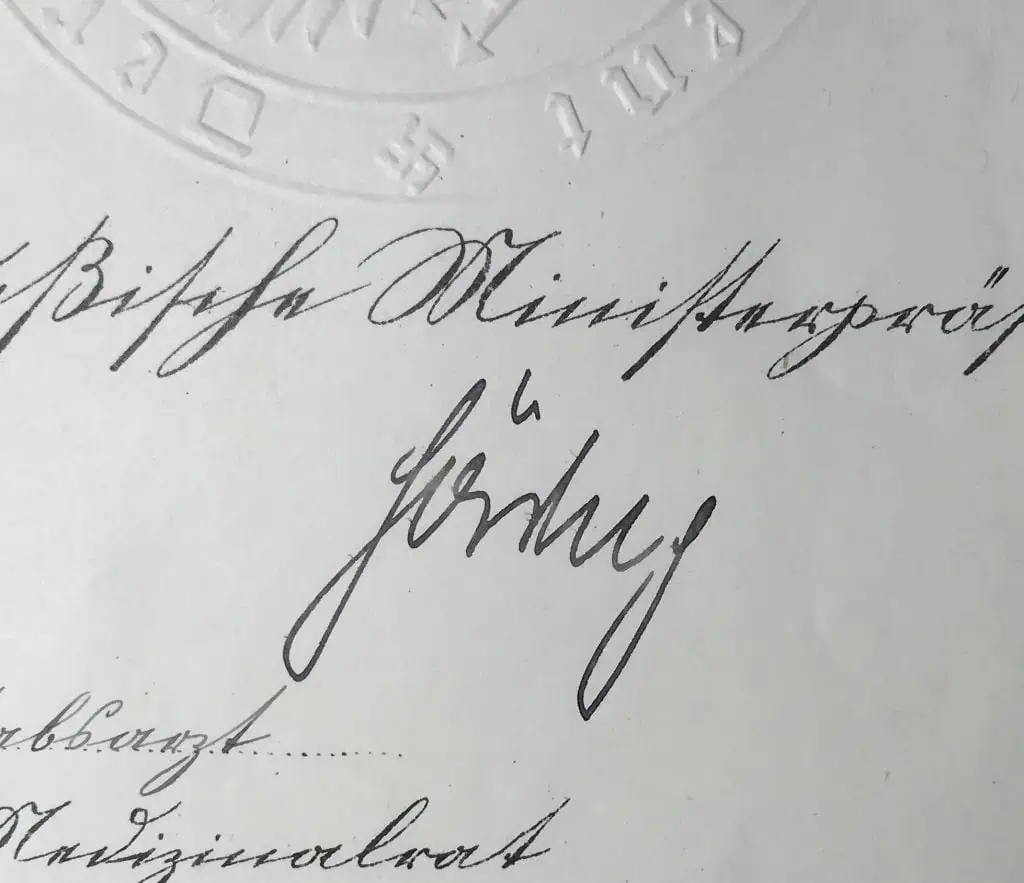 ßische Ministerprä
Göring
absarzt
Medizinalrat